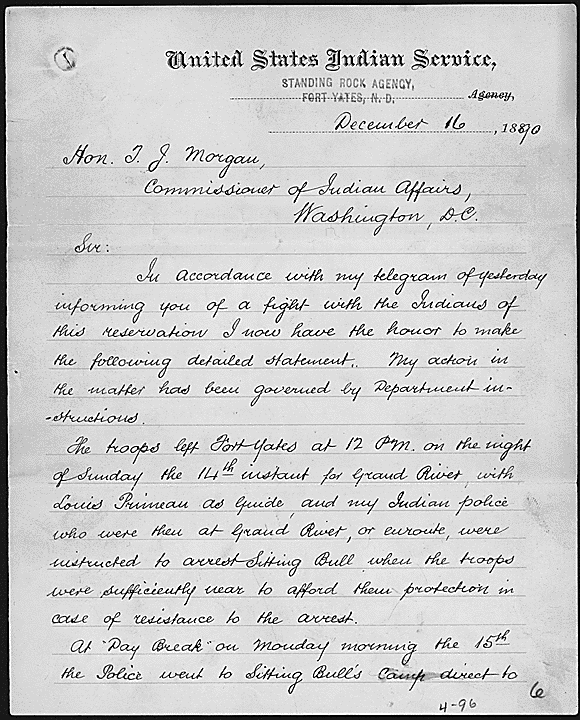 United States Indian Service,
STANDING ROCK AGENCY,
FORT YATES, N. D. Agency,
December 16, 1890
Hon. T. J. Morgan,
Commissioner of Indian Affairs,
Washington, D.C.
Sir:
In accordance with my telegram of yesterday
informing you of a fight with the Indians of
this reservation I now have the honor to make
the following detailed statement. My action in
the matter has been governed by Department in-
-structions.
The troops left Fort Yates at 12 P.M. on the night
of Sunday the 14th instant for Grand River, with
Louis Primeau as Guide, and my Indian police
who were then at Grand River, or enroute, were
instructed to arrest Sitting Bull when the troops
were sufficiently near to afford them protection in
case of resistance to the arrest.
At "Day Break" on Monday morning the 15th
the Police went to Sitting Bull's Camp direct to
6
4-96